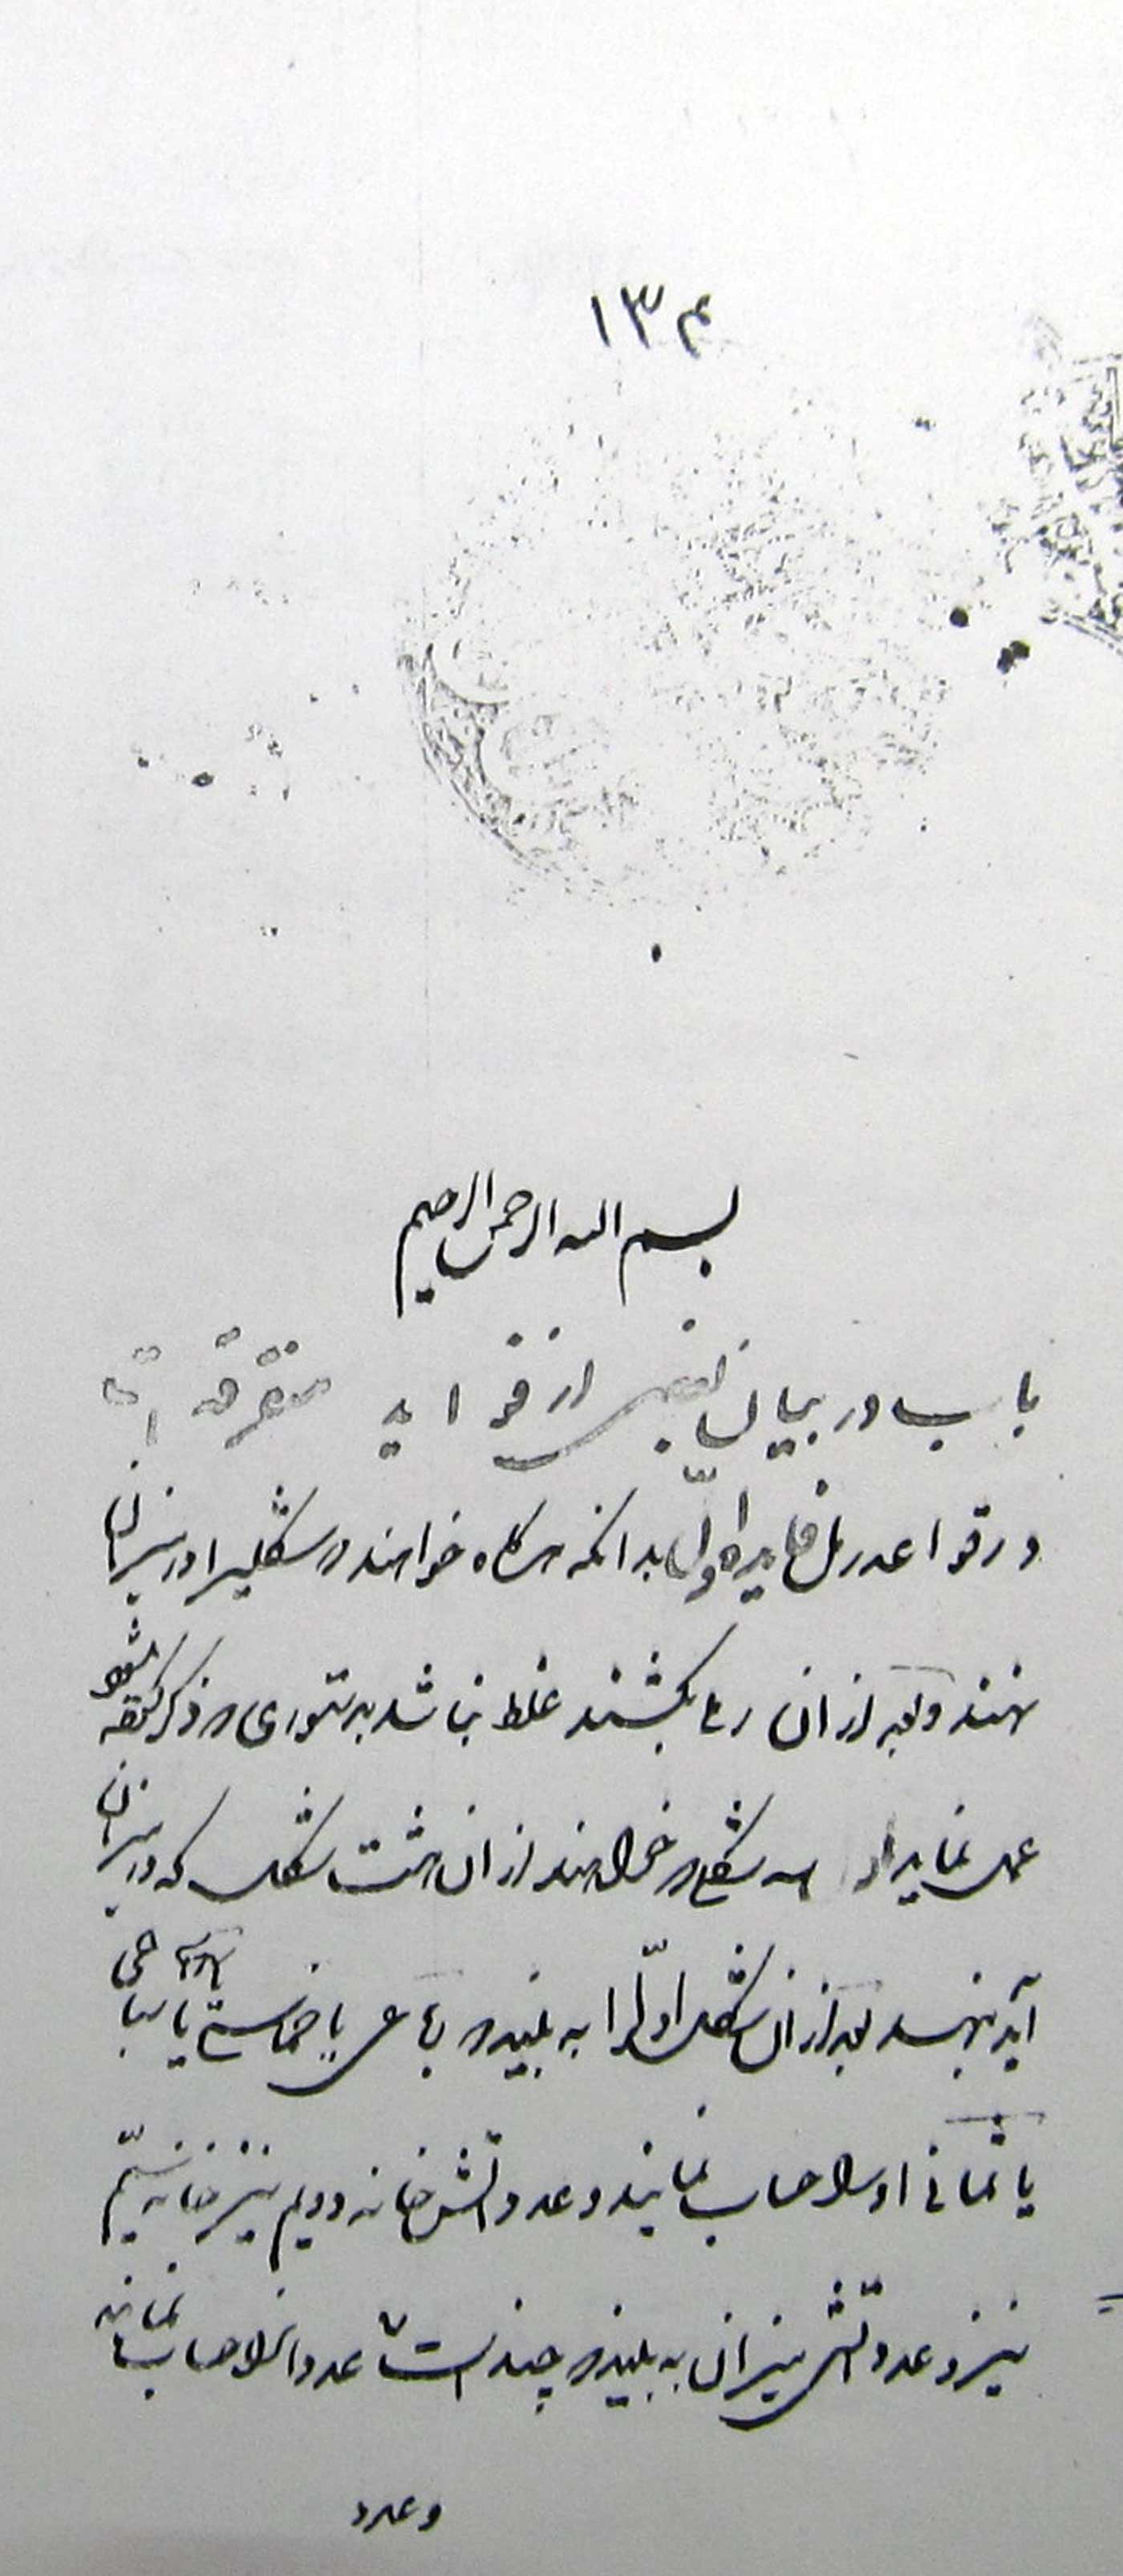 ۱۳۴
بسم الله الرحمن الرحیم
باب در بیان بعضی از فواید متفرقه
در قواعد رمل فایده اول بدانکه هرکاه خواهند که شکلیرا در میزان
نهند و بعد از ان رمل بکشند غلط نباشد بدستوری که ذکر کفته شود
عمل نماید شکلی که خواهند از ان هشت شکل که در میزان
آید بنهند بعد از ان شکل اول را به بینند که یا خماسی یا سباعی
یا ثمانی او را حساب نمایند و عدد آتش خانه دویم نیز خانه سیم
نیز و عدد آتش میزان به بینند که چند است عدد انرا حساب نمایند
و عدد